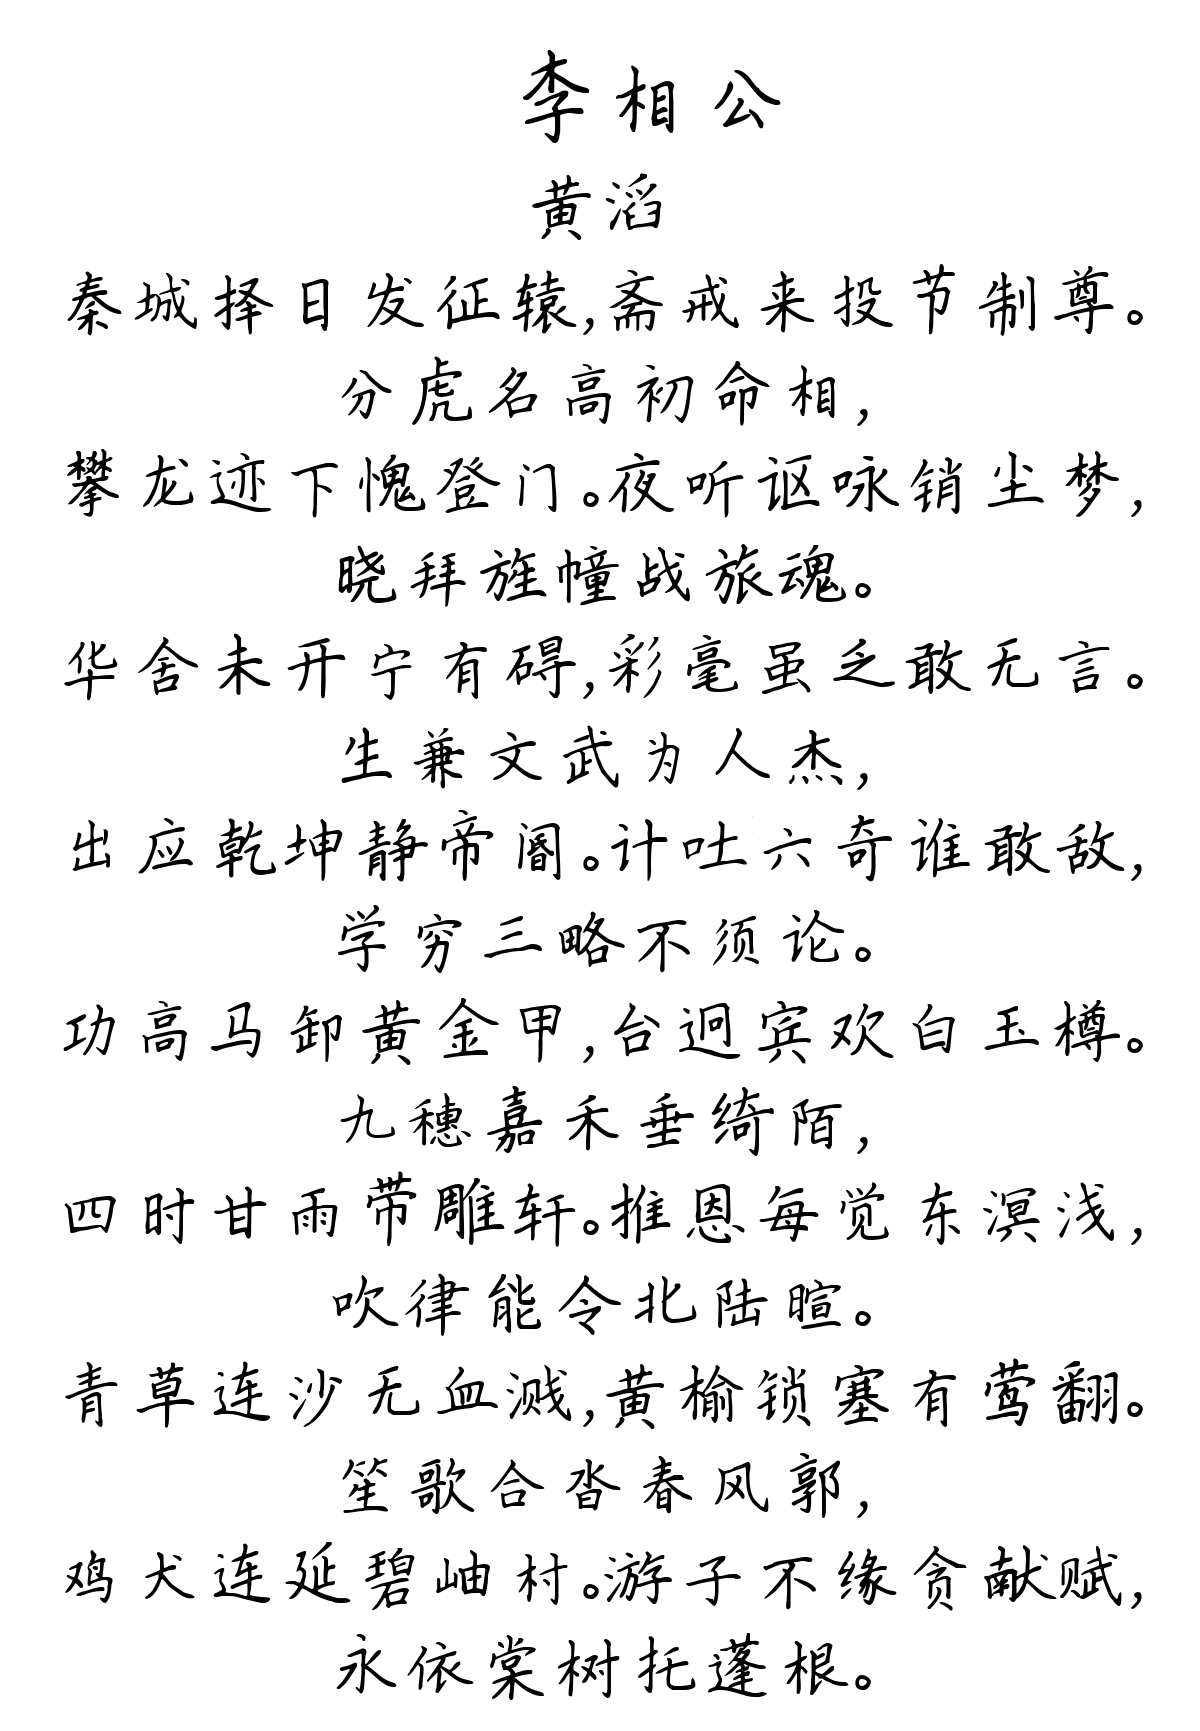 李相公
黄滔
秦城择日发征辕,斋戒来投节制尊。
分虎名高初命相,
攀龙迹下愧登门。夜听讴咏销尘梦,
晓拜旌幢战旅魂。
华舍未开宁有碍,彩毫虽乏敢无言。
生兼文武为人杰,
出应乾坤静帝阍。计吐六奇谁敢敌,
学穷三略不须论。
功高马卸黄金甲,台迥宾欢白玉樽。
九穗嘉禾垂绮陌,
四时甘雨带雕轩。推恩每觉东溟浅,
吹律能令北陆暄。
青草连沙无血溅,黄榆锁塞有莺翻。
笙歌合沓春风郭,
鸡犬连延碧岫村。游子不缘贪献赋,
永依棠树托蓬根。